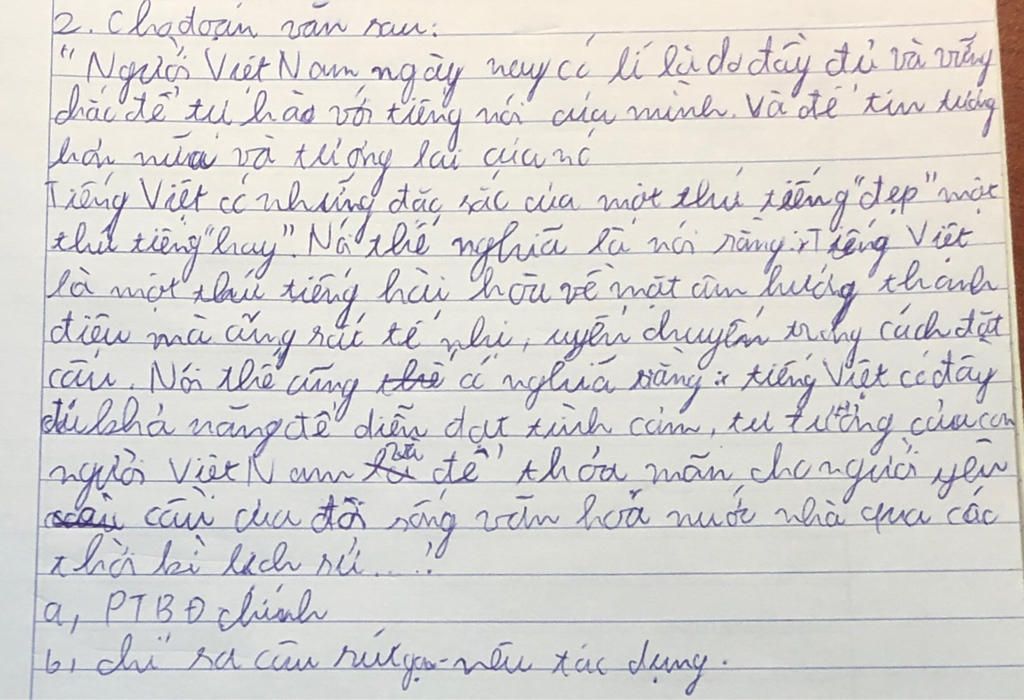 2. Cho đoạn văn sau:
"Người Việt Nam ngày nay có lí là do đầy đủ và vững
chắc để tự hào với tiếng nói của mình. Và để tin tưởng
hơn nữa và tương lai của nó
Tiếng Việt có những đặc sắc của một thứ tiếng "đẹp" một
thứ tiếng "hay". Nói thế nghĩa là nói rằng: Tiếng Việt
là một thứ tiếng hài hòa về mặt âm hưởng thanh
điệu mà cũng rất tế nhị, uyển chuyển trong cách đặt
câu. Nói thế cũng có nghĩa rằng: tiếng Việt có đầy
đủ khả năng để diễn đạt tình cảm, tư tưởng của con
người Việt Nam và để thỏa mãn cho người yêu
cầu của đời sống văn hoá nước nhà qua các
thời kì lịch sử...."
a, PTBĐ chính
b, chỉ ra câu rút gọn - nêu tác dụng.